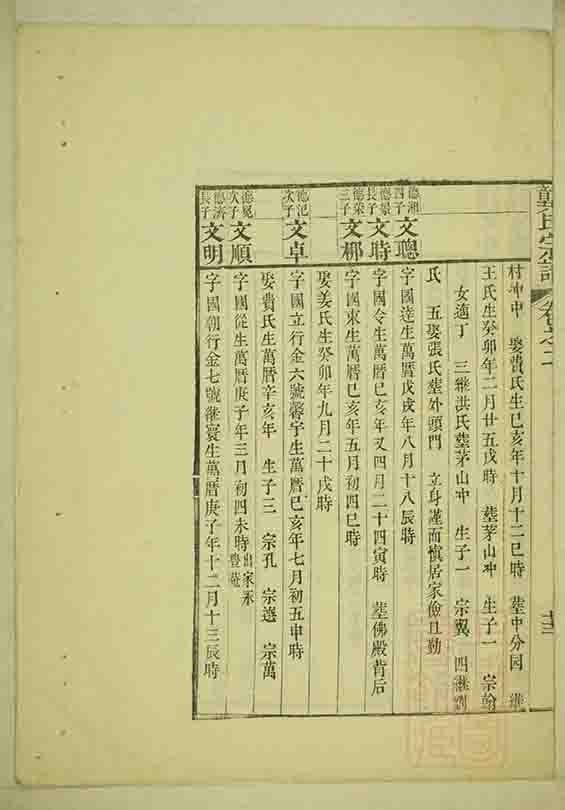 龔氏宗譜 卷之二 十三
村冲中 娶費氏生巳亥年十月十二巳時 塟中分园 繼
王氏生癸卯年二月廿五戌時 塟茅山冲 生子一 宗翰
女適丁 三繼洪氏塟茅山冲 生子一 宗翼 四繼劉
氏 五娶張氏塟外頭門 立身謹而慎居家儉且勤
德湘四子 文聰 字國逹生萬曆戊戌年八月十八辰時
德景長子 文時 字國令生萬曆巳亥年又四月二十四寅時 塟佛殿背后
德榮三子 文梆 字國東生萬曆巳亥年五月初四巳時
娶姜氏生癸卯年九月二十戌時
德祀次子 文卓 字國立行金六號馨宇生萬曆巳亥年七月初五申時
娶費氏生萬曆辛亥年 生子三 宗孔 宗選 宗萬
德冕次子 文順 字國從生萬曆庚子年三月初四未時出家永豐菴
德濟長子 文明 字國朝行金七號繼寰生萬曆庚子年十二月十三辰時